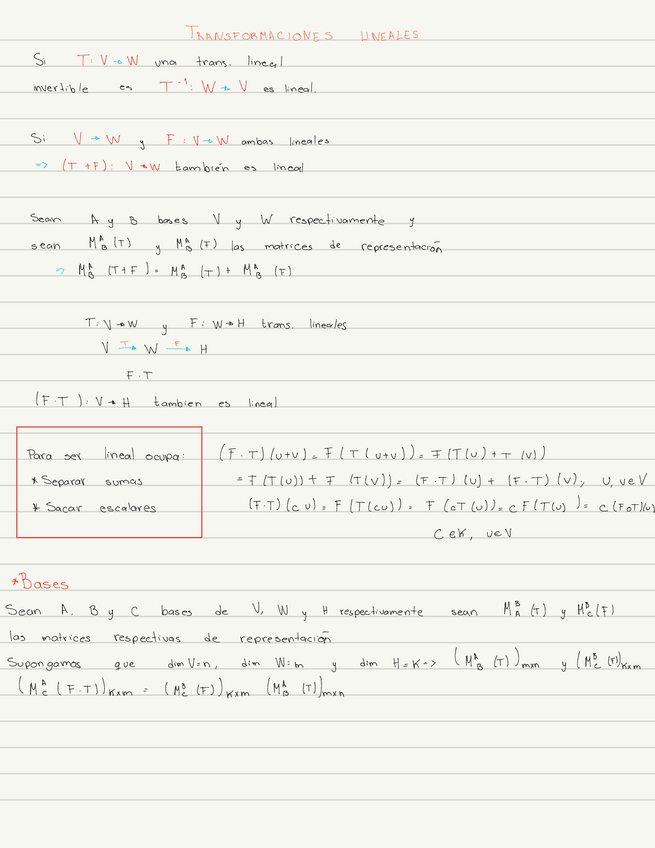 TRANSFORMACIONES LINEALES
Si T: V → W una trans. lineal
invertible es T⁻¹: W → V es lineal.
Si V → W y F: V → W ambas lineales
=> (T + F): V → W también es lineal
Sean A y B bases V y W respectivamente y
sean M^A_B (T) y M^A_B (F) las matrices de representación
=> M^A_B (T+F) = M^A_B (T) + M^A_B (F)
T: V → W y F: W → H trans. lineales
V —T→ W —F→ H
F·T
(F·T): V → H tambien es lineal
Para ser lineal ocupa:
* Separar sumas
* Sacar escalares
(F·T)(u+v) = F(T(u+v)) = F(T(u) + T(v))
= F(T(u)) + F(T(v)) = (F·T)(u) + (F·T)(v), u, v ∈ V
(F·T)(cu) = F(T(cu)) = F(cT(u)) = cF(T(u)) = c(F∘T)(u)
C ∈ K, u ∈ V
*Bases
Sean A, B y C bases de V, W y H respectivamente sean M^B_A (T) y M^B_C (F)
las matrices respectivas de representación
Supongamos que dim V=n, dim W=m y dim H=K => (M^A_B (T))mxn y (M^B_C (F))Kxm
(M^A_C (F·T))Kxm = (M^B_C (F))Kxm (M^A_B (T))mxn